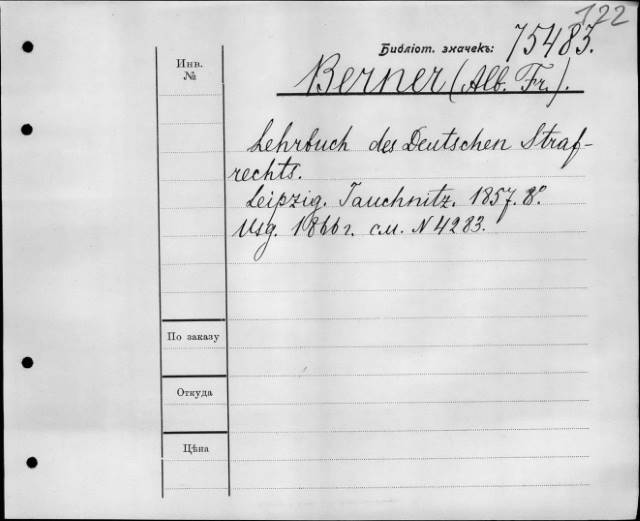 122
Библіот. значекъ: 75483.
Инв.
№
Berner (Alb. Fr.).
Lehrbuch des Deutschen Straf-
rechts.
Leipzig. Tauchnitz. 1857. 8°.
Изд. 1866 г. см. N 4283.
По заказу
Откуда
Цѣна